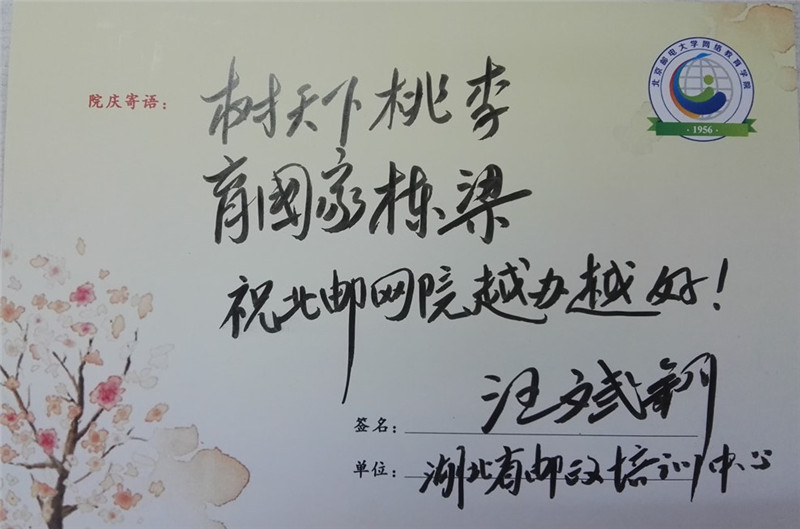 北京邮电大学网络教育学院
· 1956 ·
院庆寄语：树天下桃李
育國家栋梁
祝北邮网院越办越好！
签名：汪斌
单位：湖北省邮政培训中心